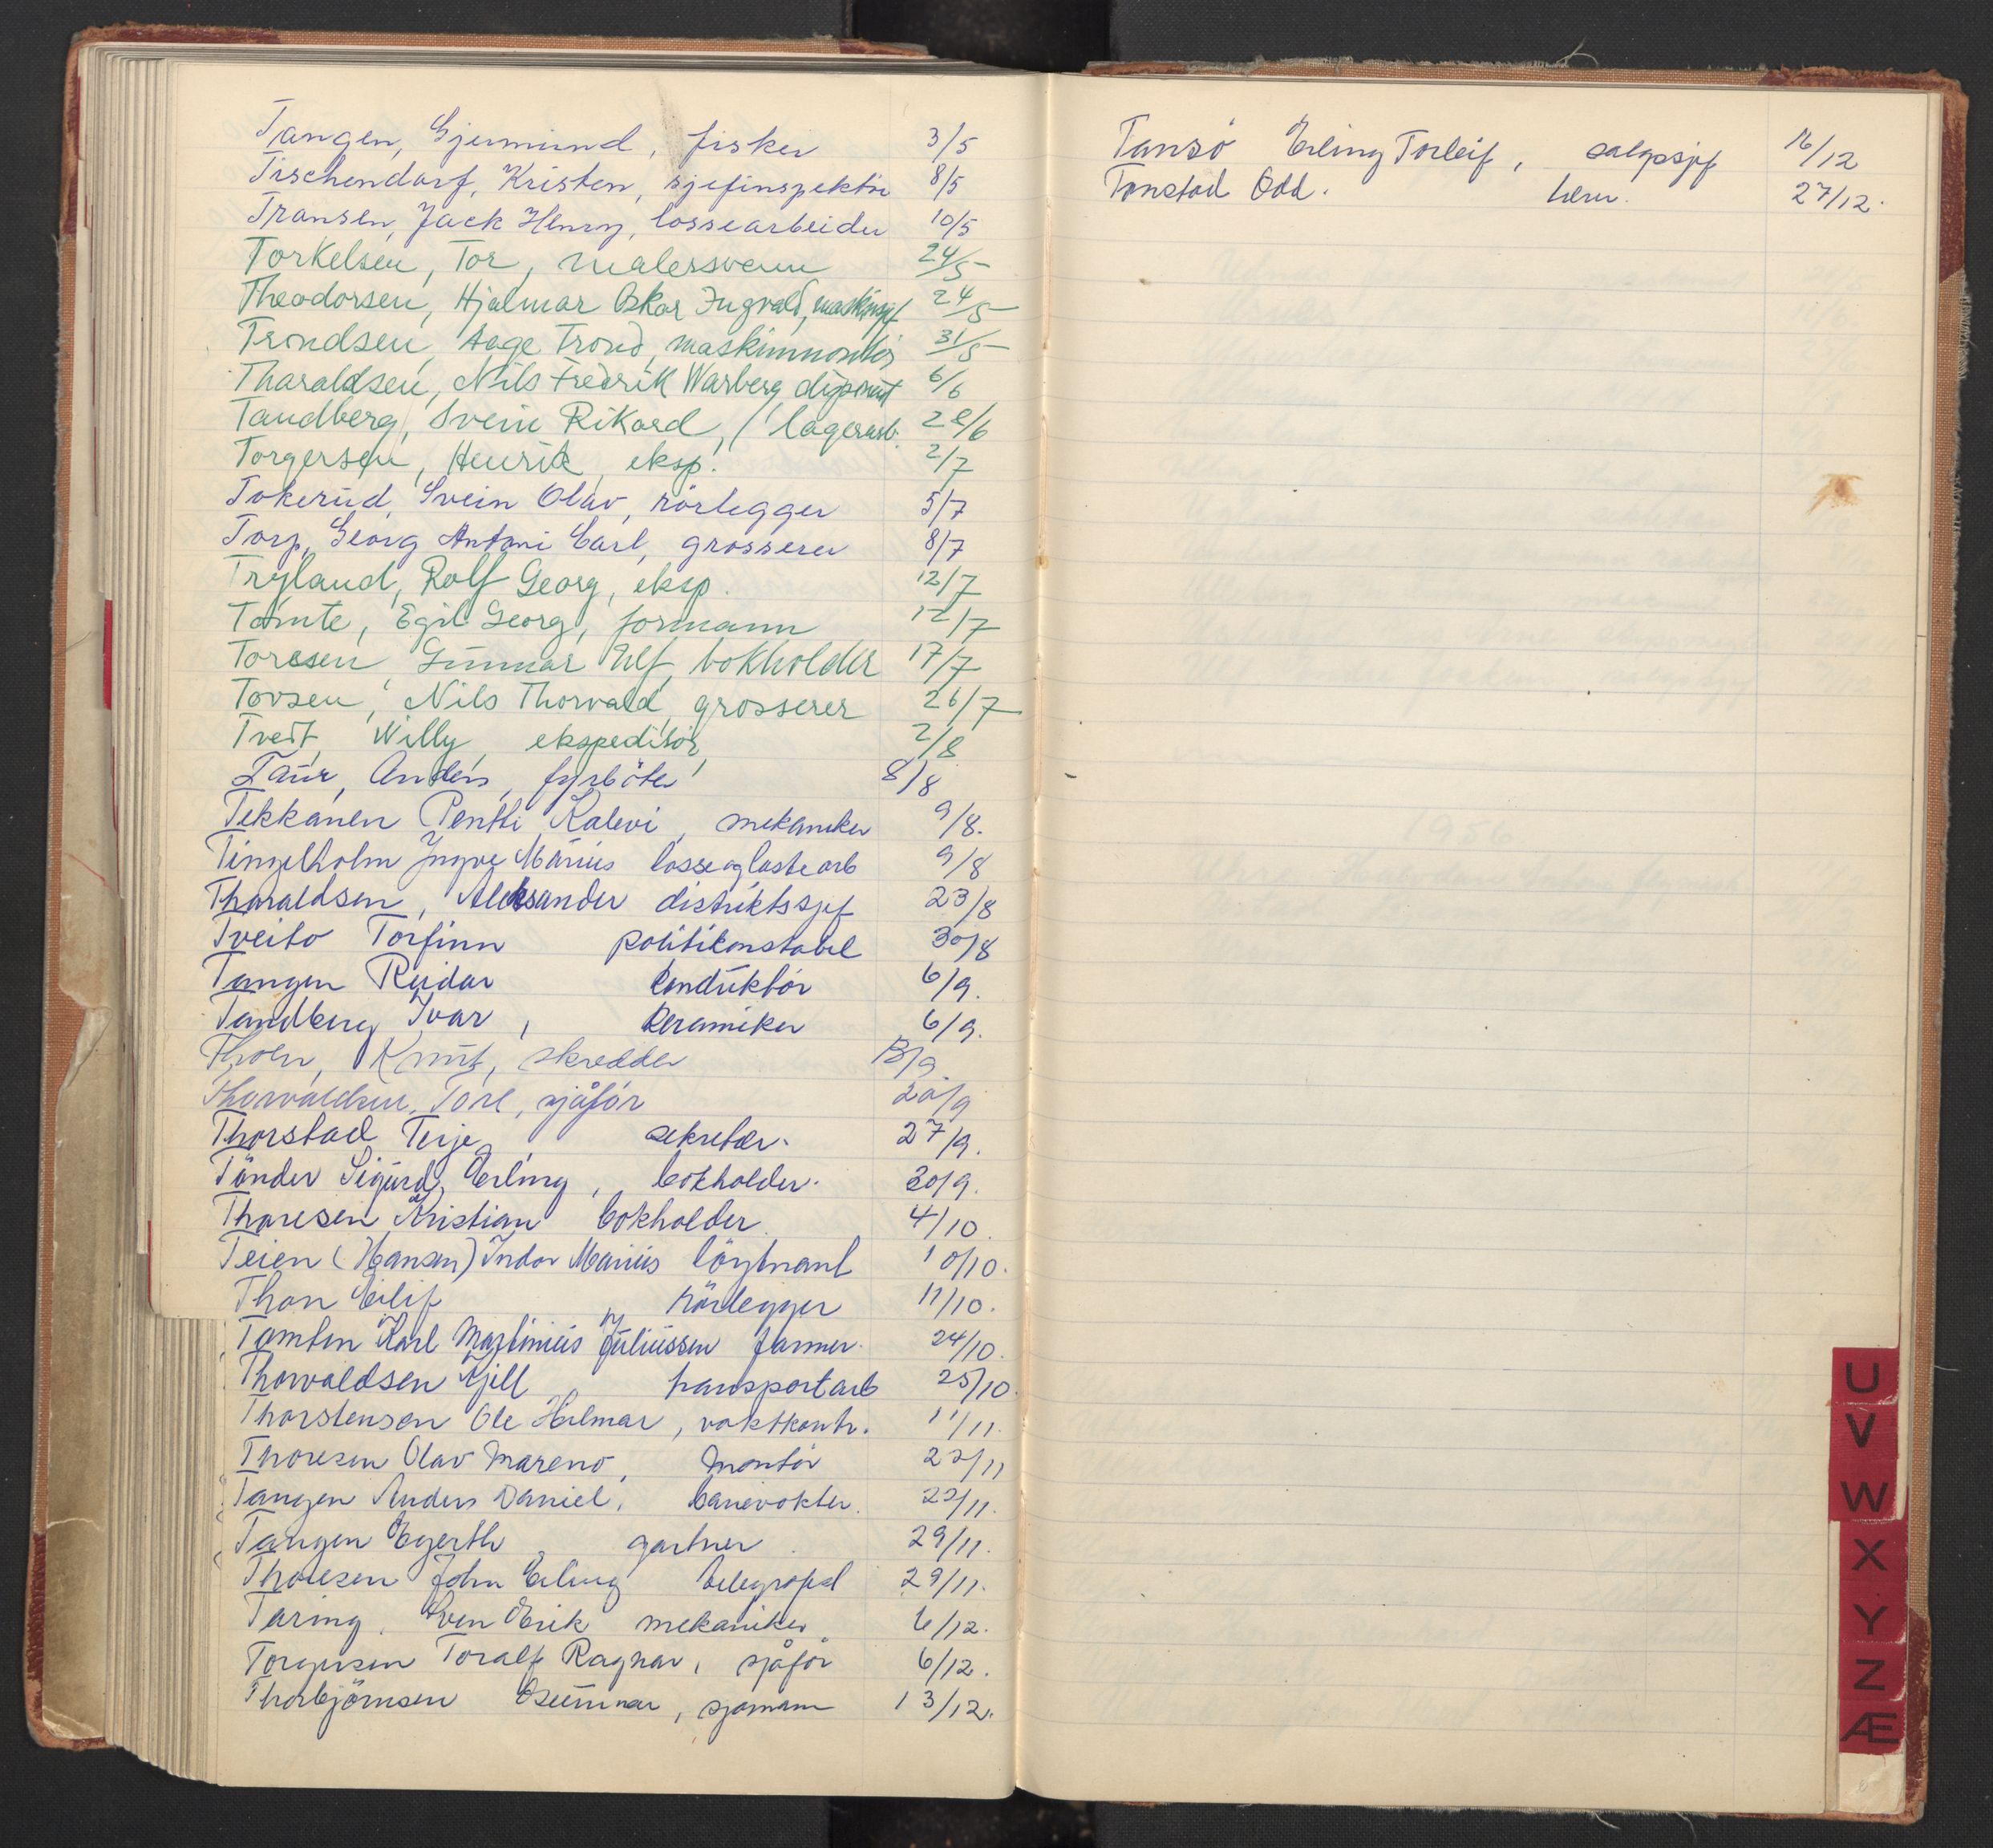 Tangen, Gjermund, fisker 3/5
Tischendorf, Kristen, sjefinspektör 8/5
Transen, Jack Henry, lossearbeider 10/5
Torkelsen, Tor, malersvenn 24/5
Theodorsen, Hjalmar Oskar Ingvald, maskinsjef 24/5
Trondsen, Aage Trond, maskinmontör 31/5
Tharaldsen, Nils Fredrik Warberg, disponent 6/6
Tandberg, Svein Rikard, lagerarb. 28/6
Torgersen, Henrik, eksp. 2/7
Tokerud, Svein Olav, rörlegger 5/7
Torp, Georg Antoni Carl, grosserer 8/7
Tryland, Rolf Georg, eksp. 12/7
Tomte, Egil Georg, formann 12/7
Toresen, Gunnar Ulf, bokholder 17/7
Tovsen, Nils Thorvald, grosserer 26/7
Tvedt, Willy, ekspeditör 2/8
Taur, Anders, fyrböter 8/8
Tekkanen Pentti Kalevi, mekaniker 9/8.
Tingelholm Yngve Marius losse og laste arb 9/8
Tharaldsen, Aleksander distriktssjef 23/8
Tveito Torfinn politikonstabel 30/8
Tangen Reidar konduktör 6/9.
Tandberg Ivar, keramiker 6/9.
Thoen, Knut, skredder 13/9
Thorvaldsen, Tore, sjåför 20/9
Thorstad Terje sekretær. 27/9.
Tönder Sigurd Erling, bokholder. 30/9.
Thoresen Kristian bokholder 4/10.
Teien (Hansen) Indor Marius löytnant 10/10.
Thon Eilif rörlegger 11/10.
Tomten Karl Martinius Juliussen farmer. 24/10.
Thorvaldsen Kjell transportarb 25/10.
Thorstensen Ole Hilmar, vaktkontr. 11/11.
Thoresen Olav Mareno, montör 22/11
Tangen Anders Daniel, banevokter. 22/11.
Tangen Egerth, gartner 29/11.
Thoresen John Erling telegrafist 29/11.
Taring, Sven Erik mekaniker 6/12.
Torgersen Toralf Ragnar, sjåför 6/12.
Thorbjörnsen Gunnar, sjömann 13/12.
Tansö Erling Torleif, salgssjef 16/12
Tonstad Odd. lærer. 27/12.
U
V
W
X
Y
Z
Æ